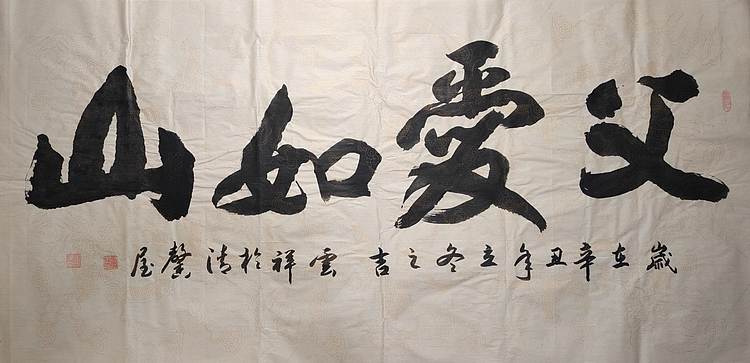 父愛如山
歲在辛丑年立冬之吉 雲祥於清馨屋